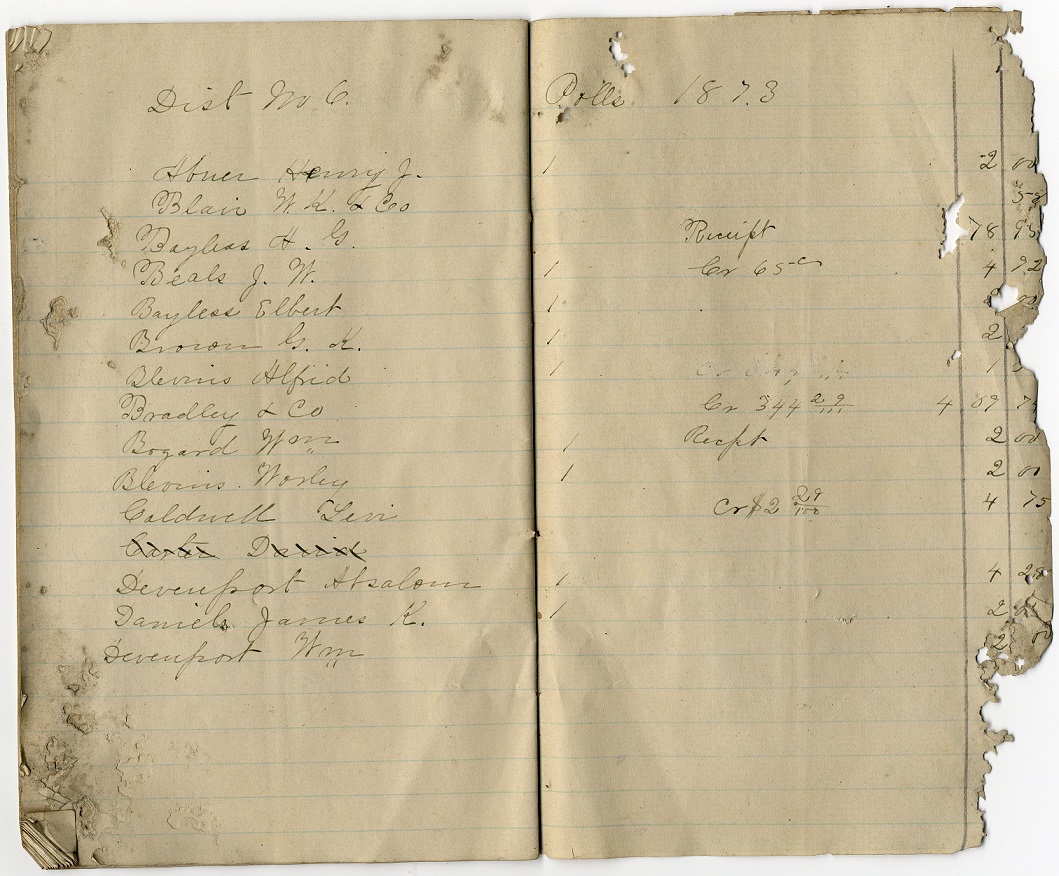 Dist No 6. Polls 1873
Abner Henry J. 1 2 00
Blair W. K. & Co 50
Bayless H. G. Receipt 78 95
Beals J. W. 1 Cr 65 c 4 92
Bayless Elbert 1 00
Brown G. K. 1 2
Blevins Alfrid 1 Cr 1
Bradley & Co Cr 344 29/100 4 59
Bogard Wm 1 Recpt 2 00
Blevins Worley 1 2 00
Caldwell Levi Cr $2 29/100 4 75
Carter David
Devenport Absalom 1 4 28
Daniels James K. 1 2 00
Devenport Wm 2 00